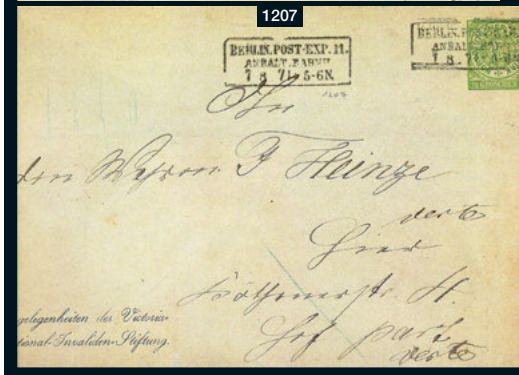 1207
BERLIN.POST-EXP.11.
ANHALT.BAHNH
7 8 71 5-6N.
BERLIN.P
7 8 71
1207
An
den Herrn F Heinze
Hier
Köthenerstr. 4.
Hof part
gelegenheiten der Victoria-
tional-Invaliden-Stiftung.